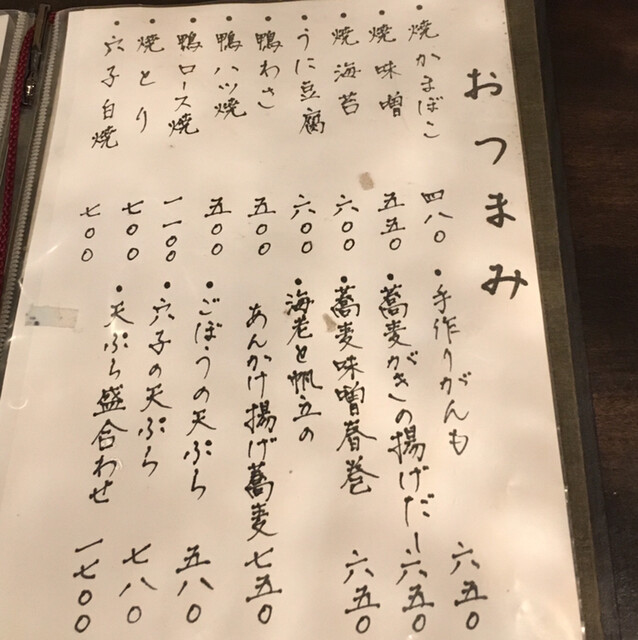 おつまみ
・焼かまぼこ 四八〇
・焼味噌 五五〇
・焼海苔 六〇〇
・うに豆腐 六〇〇
・鴨わさ 五〇〇
・鴨ハツ焼 五〇〇
・鴨ロース焼 一一〇〇
・焼とり 七〇〇
・穴子白焼 七〇〇
・手作りがんも 六五〇
・蕎麦がきの揚げだし 六五〇
・蕎麦味噌春巻 六五〇
・海老と帆立の
あんかけ揚げ蕎麦 七五〇
・ごぼうの天ぷら 五八〇
・穴子の天ぷら 七八〇
・天ぷら盛合わせ 一七〇〇